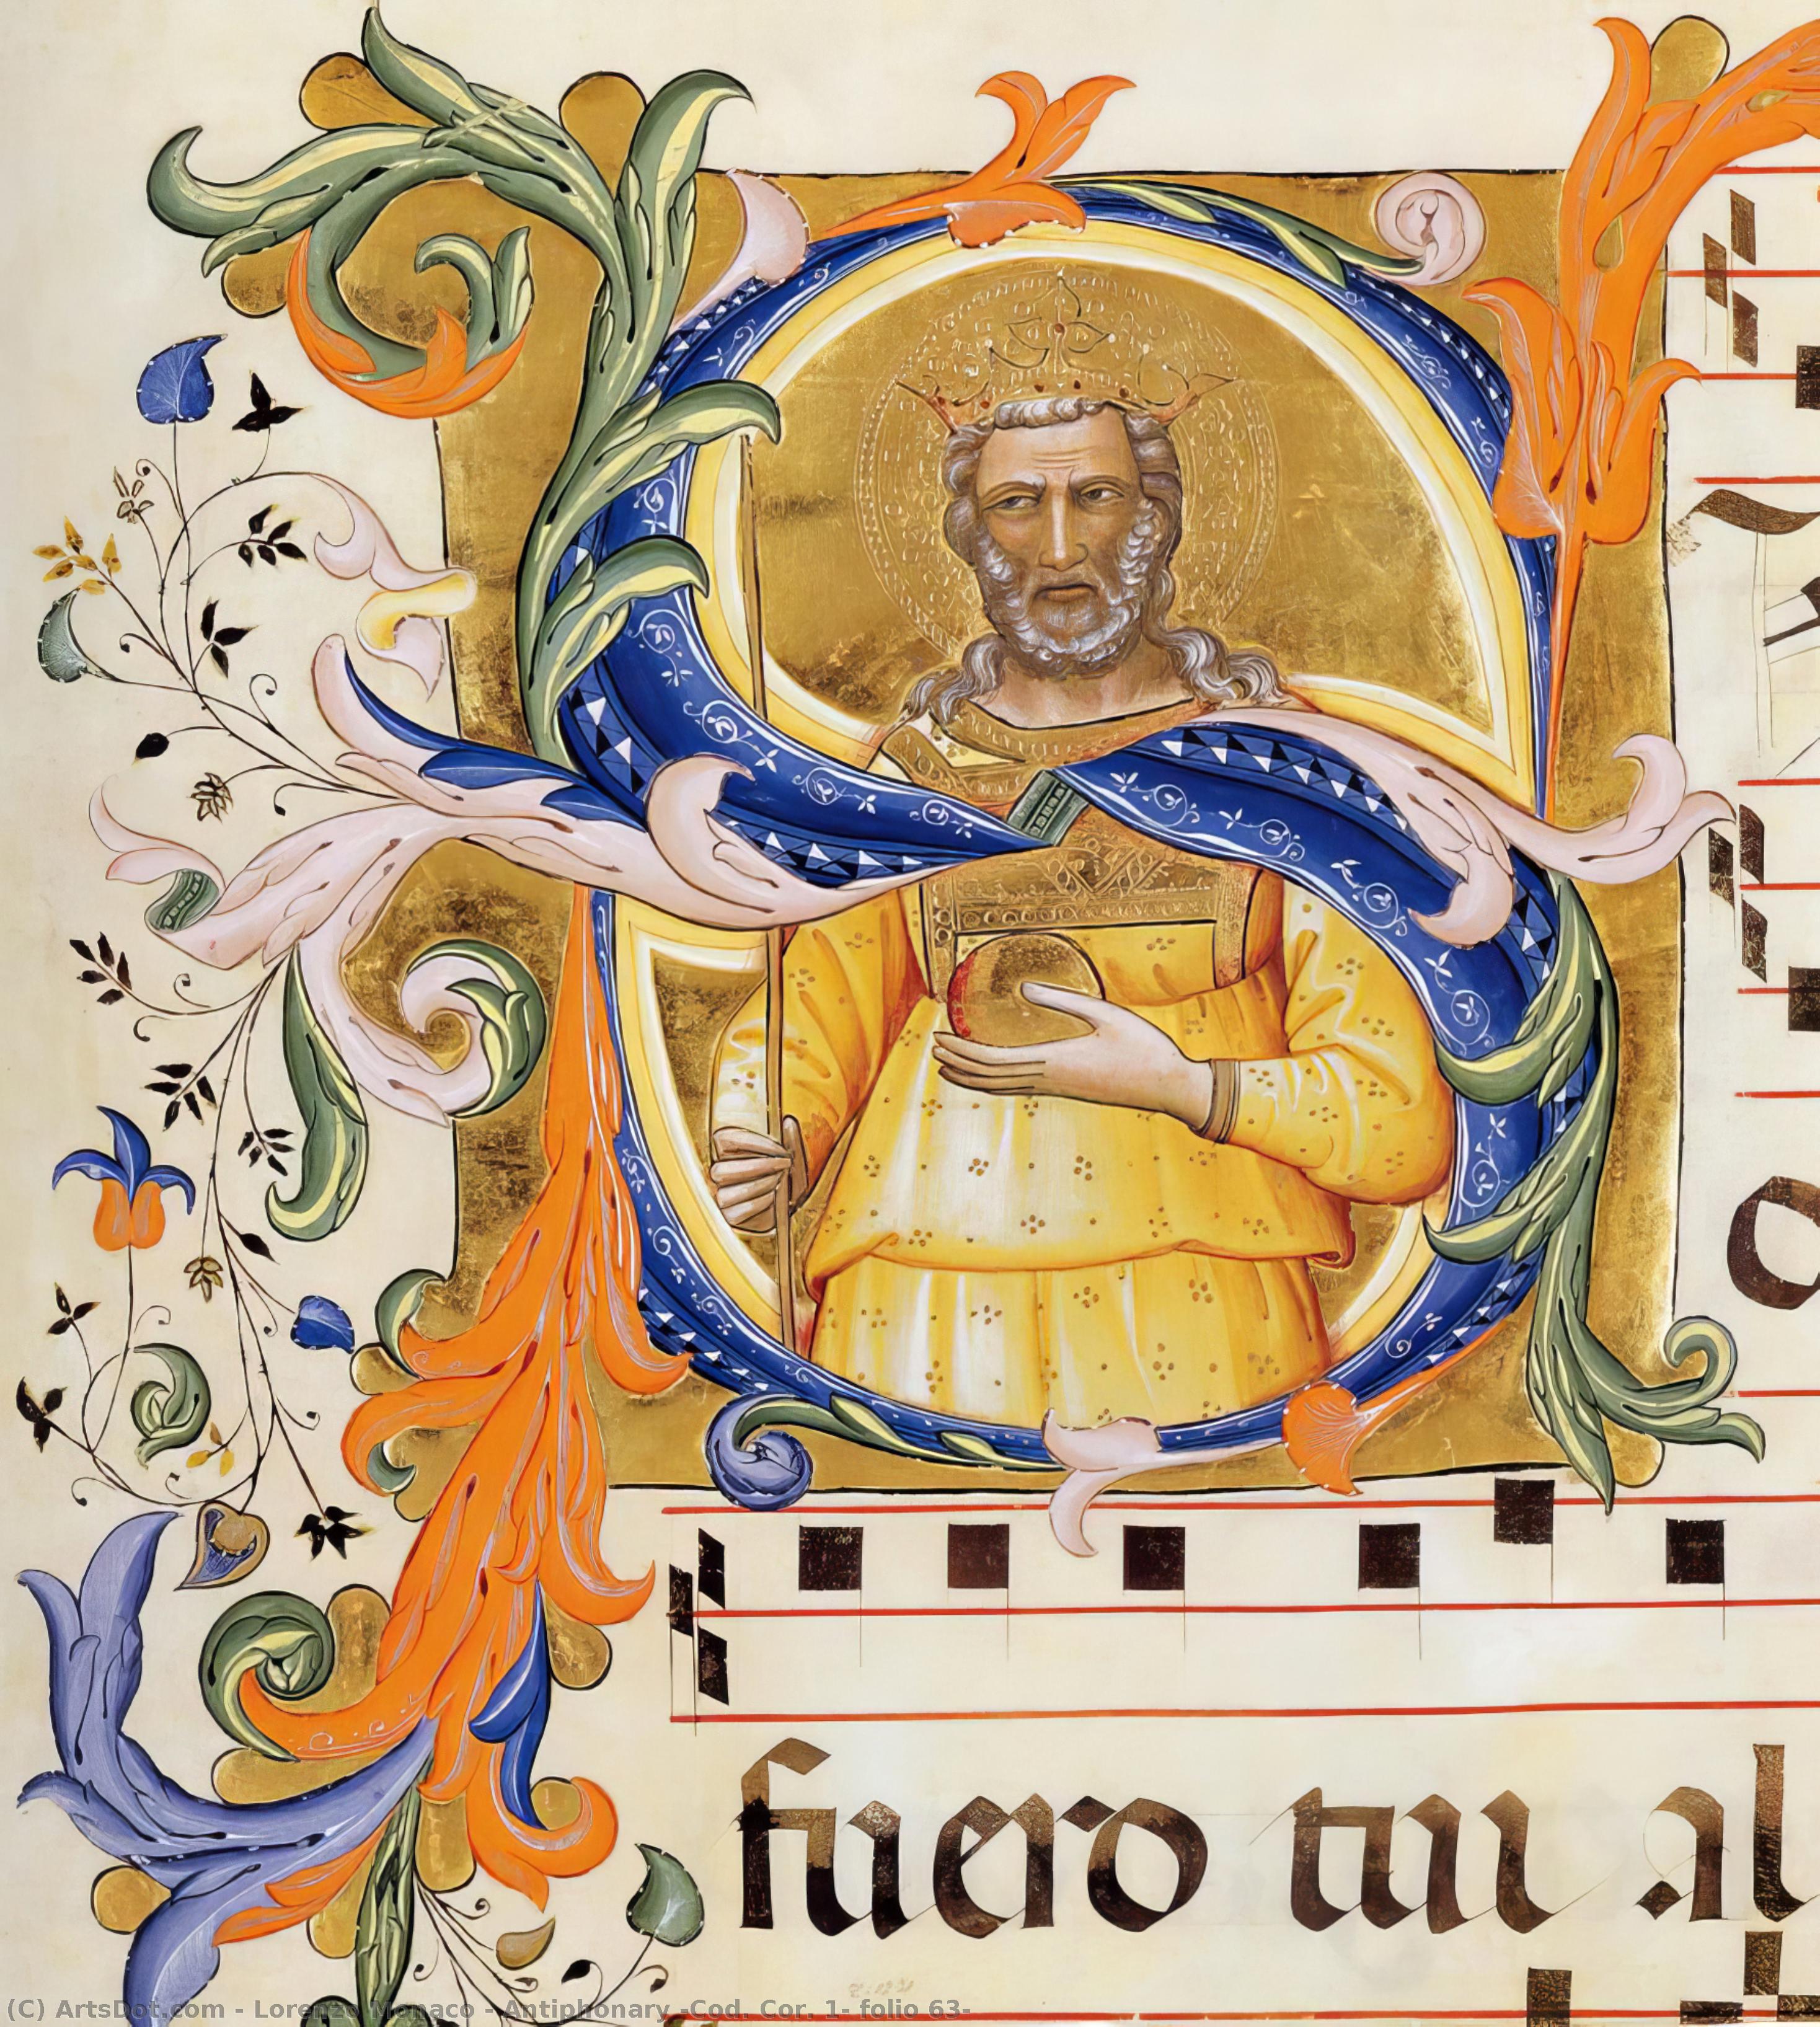 S
o
fuero tui al
(C) ArtsDot.com - Lorenzo Monaco - Antiphonary -Cod. Cor. 1- folio 63-